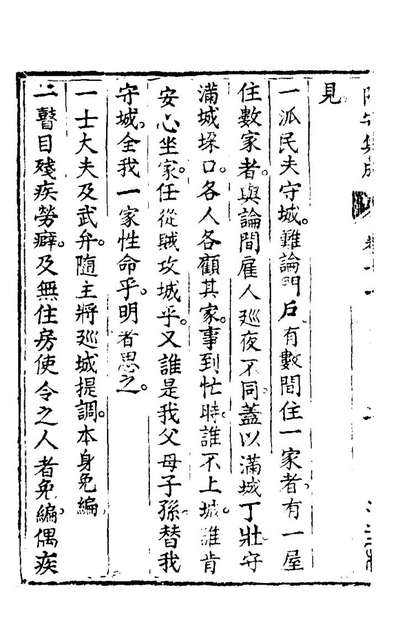 見
一派民夫守城。難論門戶有數間住一家者。有一屋
住數家者。與論間雇人廵夜不同。蓋以滿城丁壯守
滿城垛口。各人各顧其家。事到忙時。誰不上城。誰肯
安心坐家。任從賊攻城乎。又誰是我父母子孫。替我
守城。全我一家性命乎。明者思之。
一士大夫及武弁。隨主將廵城提調。本身免編
一瞽目殘疾勞癖。及無住房使令之人者免編。偶疾